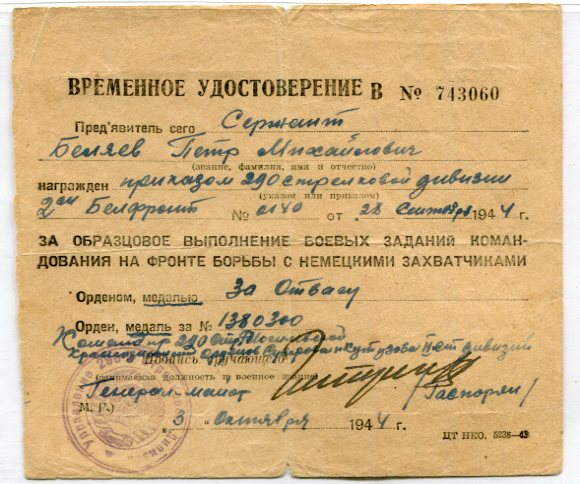 ВРЕМЕННОЕ УДОСТОВЕРЕНИЕ В № 743060
Пред'явитель сего Сержант
Беляев Петр Михайлович
(звание, фамилия, имя и отчество)
награжден приказом 290 стрелковой дивизии
(указом или приказом)
2го Белфронт № 0140 от „28 Сентября 1944 г.
ЗА ОБРАЗЦОВОЕ ВЫПОЛНЕНИЕ БОЕВЫХ ЗАДАНИЙ КОМАН-
ДОВАНИЯ НА ФРОНТЕ БОРЬБЫ С НЕМЕЦКИМИ ЗАХВАТЧИКАМИ
Орденом, медалью За Отвагу
Орден, медаль за № 1380300
Командир 290 Стр.
Краснознаменной Орденов Суворова и Кутузова дивизии
Подпись вручающего
(занимаемая должность и военное звание)
Генерал-майор /Гаспарян/
М. П.
„3 " Октября 1944 г.
ЦТ НКО. 5238—43